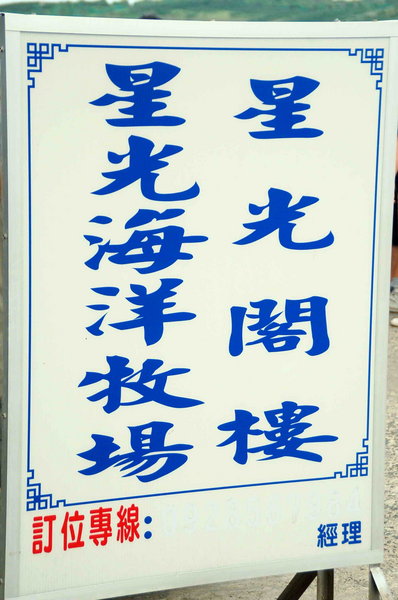 星光閣樓
星光海洋牧場
訂位專線:
經理